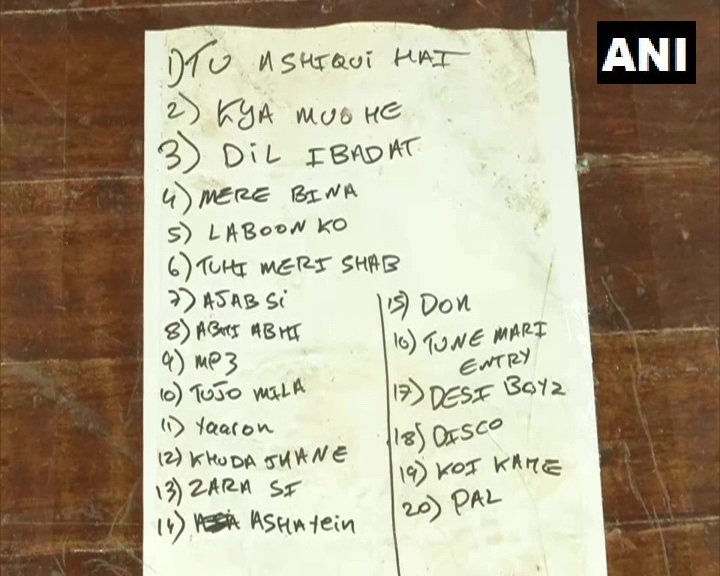 ANI
1) TU ASHIQUI HAI
2) KYA MUJHE
3) DIL IBADAT
4) MERE BINA
5) LABOON KO
6) TUHI MERI SHAB
7) AJAB SI
8) ABHI ABHI
9) MP3
10) TUJO MILA
11) Yaaron
12) KHUDA JHANE
13) ZARA SI
14) ASHAYein
15) DON
16) TUNE MARI
ENTRY
17) DESI BOYZ
18) DISCO
19) KOI KAHE
20) PAL